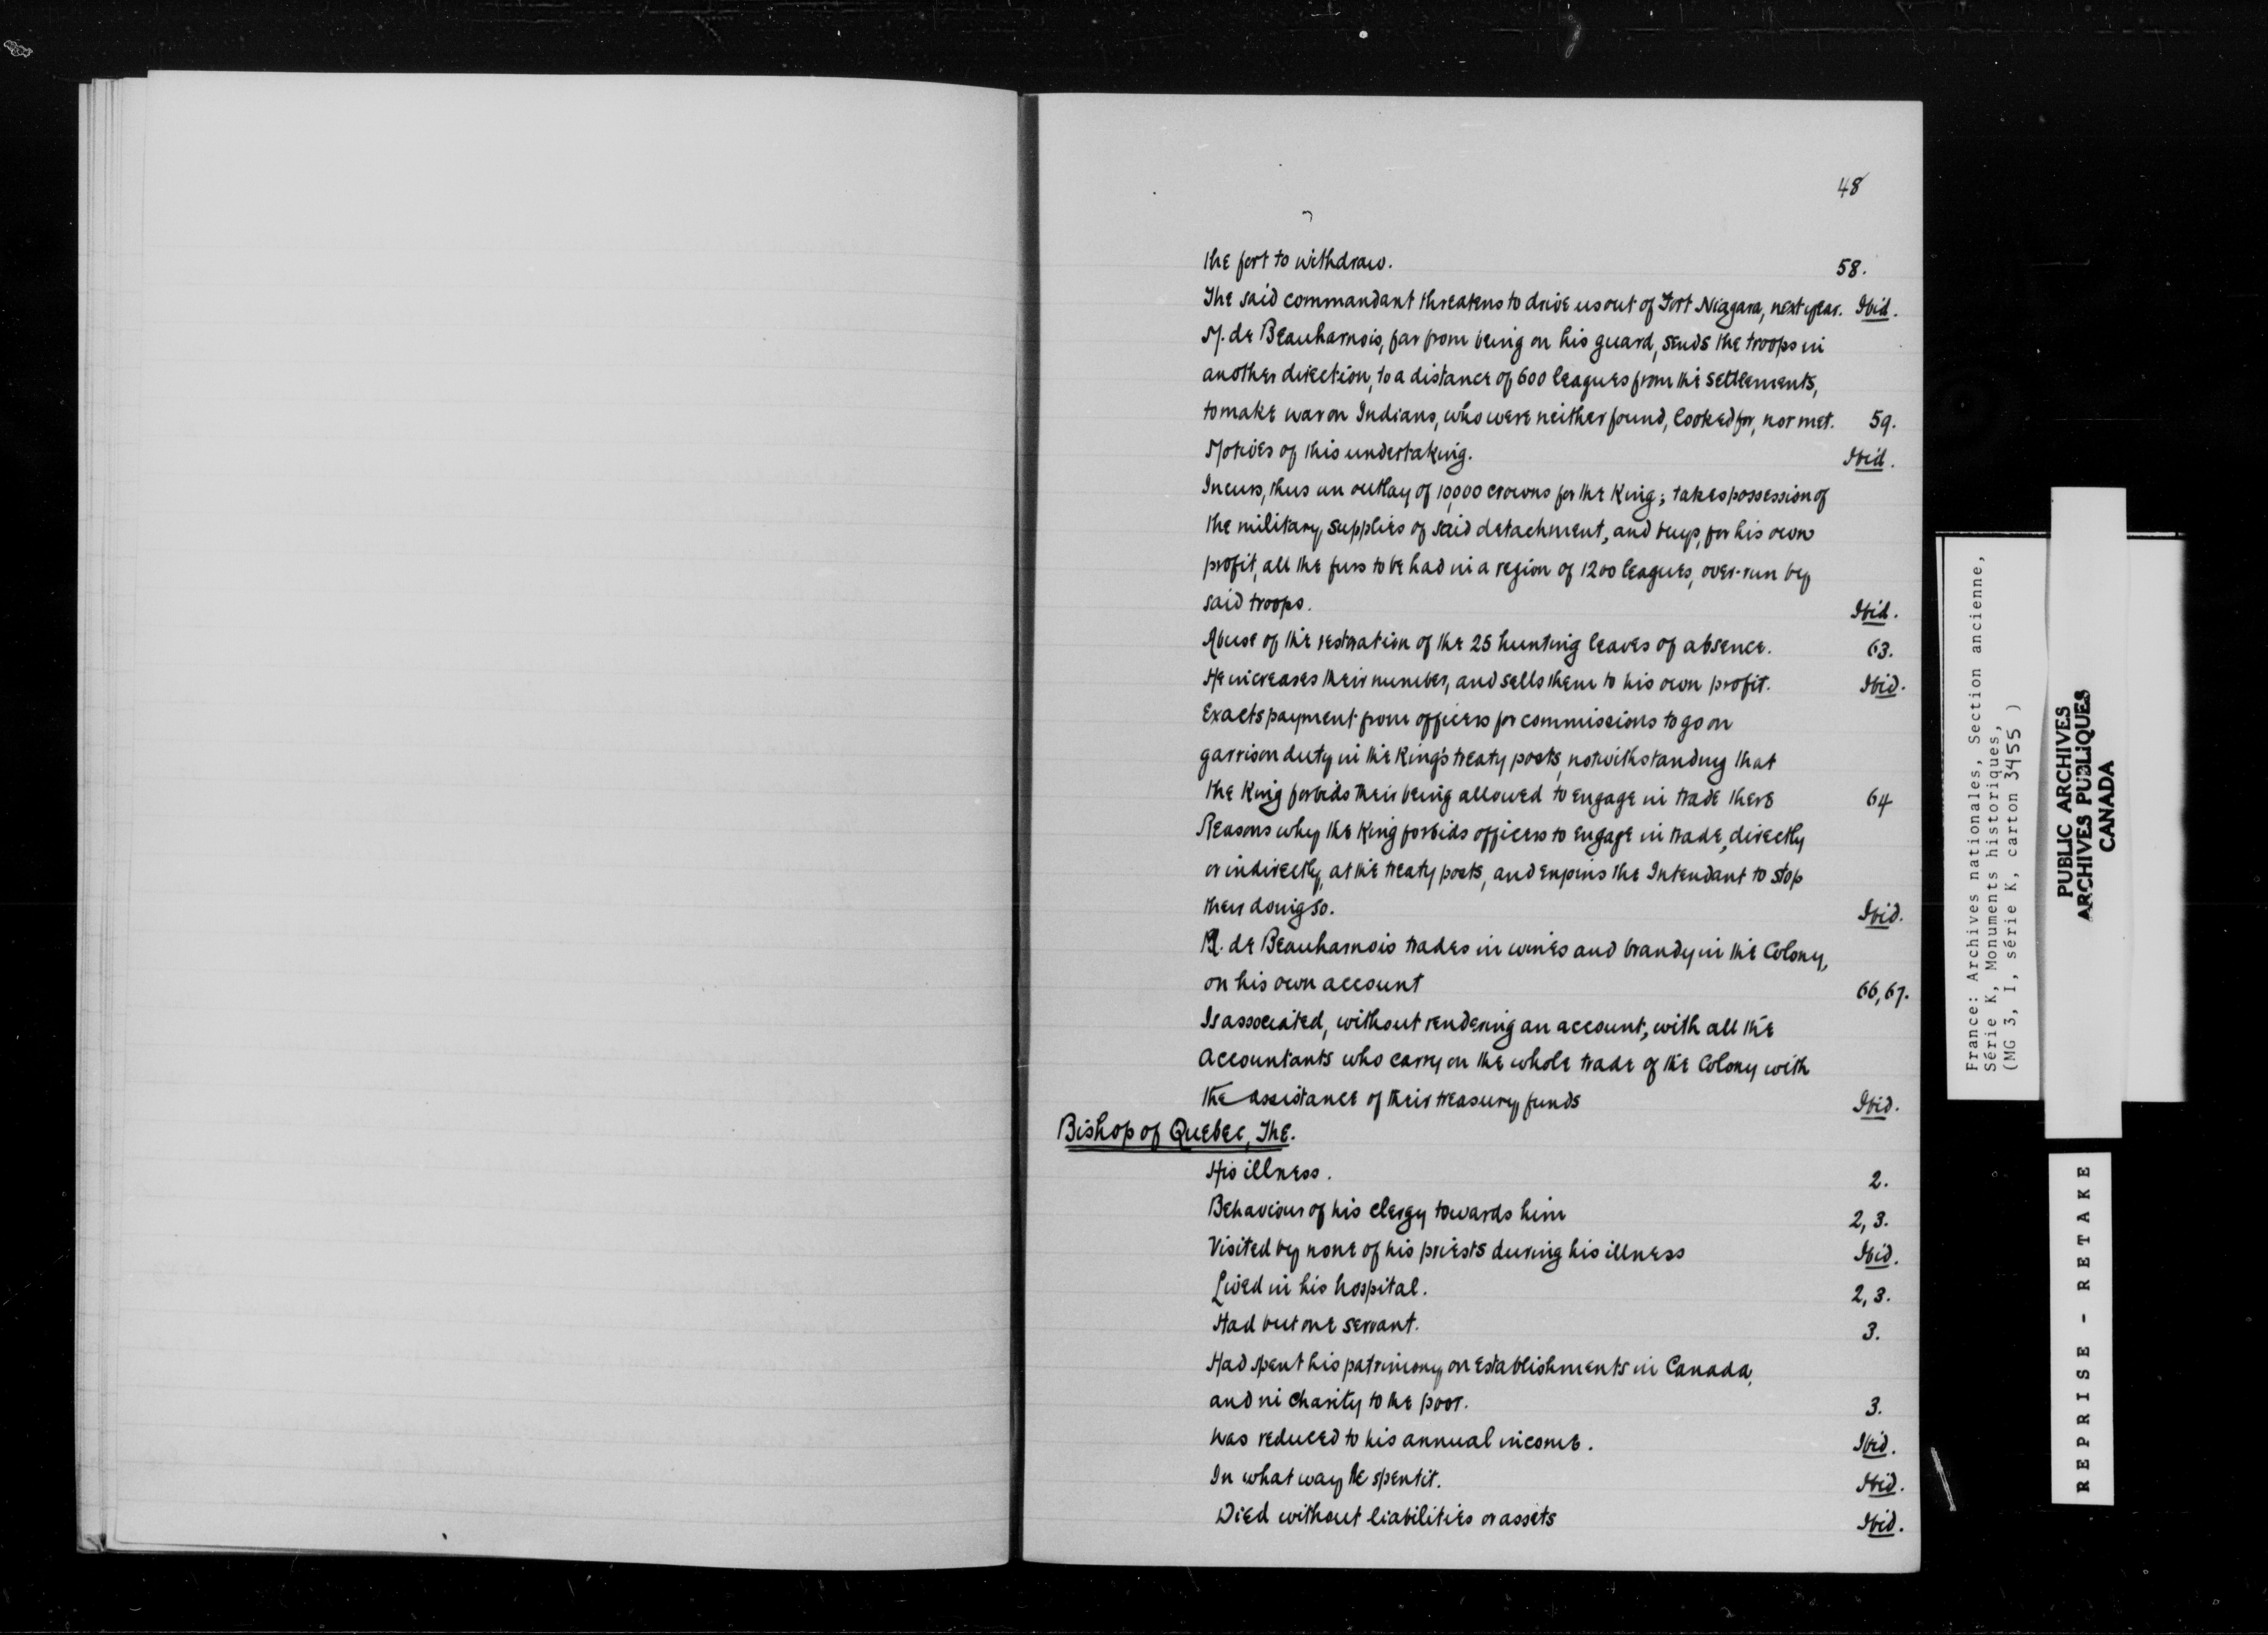 48
the fort to withdraw. 58.
The said commandant threatens to drive us out of Fort Niagara, next year. Ibid.
M. de Beauharnois, far from being on his guard, sends the troops in
another direction, to a distance of 600 leagues from the settlements,
to make war on Indians, who were neither found, looked for, nor met. 59.
Motives of this undertaking. Ibid.
Incurs, thus an outlay of 10,000 crowns for the King; takes possession of
the military supplies of said detachment, and buys, for his own
profit, all the furs to be had in a region of 1200 leagues, over-run by
said troops. Ibid.
Abuse of the restoration of the 25 hunting leaves of absence. 63.
He increases their number, and sells them to his own profit. Ibid.
Exacts payment from officers for commissions to go on
garrison duty in the King's treaty posts, notwithstanding that
the King forbids their being allowed to engage in trade there 64
Reasons why the King forbids officers to engage in trade, directly
or indirectly, at the treaty posts, and enjoins the Intendant to stop
their doing so. Ibid.
M. de Beauharnois trades in wines and brandy in the Colony,
on his own account 66, 67.
Is associated, without rendering an account, with all the
Accountants who carry on the whole trade of the Colony with
the assistance of their treasury funds Ibid.
Bishop of Quebec, The.
His illness. 2.
Behaviour of his clergy towards him 2, 3.
Visited by none of his priests during his illness Ibid.
Lived in his hospital. 2, 3.
Had but one servant. 3.
Had spent his patrimony on establishments in Canada,
and in charity to the poor. 3.
Was reduced to his annual income. Ibid.
In what way he spent it. Ibid.
Died without liabilities or assets Ibid.
France: Archives nationales, Section ancienne,
Série K, Monuments historiques,
(MG 3, I, série K, carton 3455 )
PUBLIC ARCHIVES
ARCHIVES PUBLIQUES
CANADA
REPRISE - RETAKE